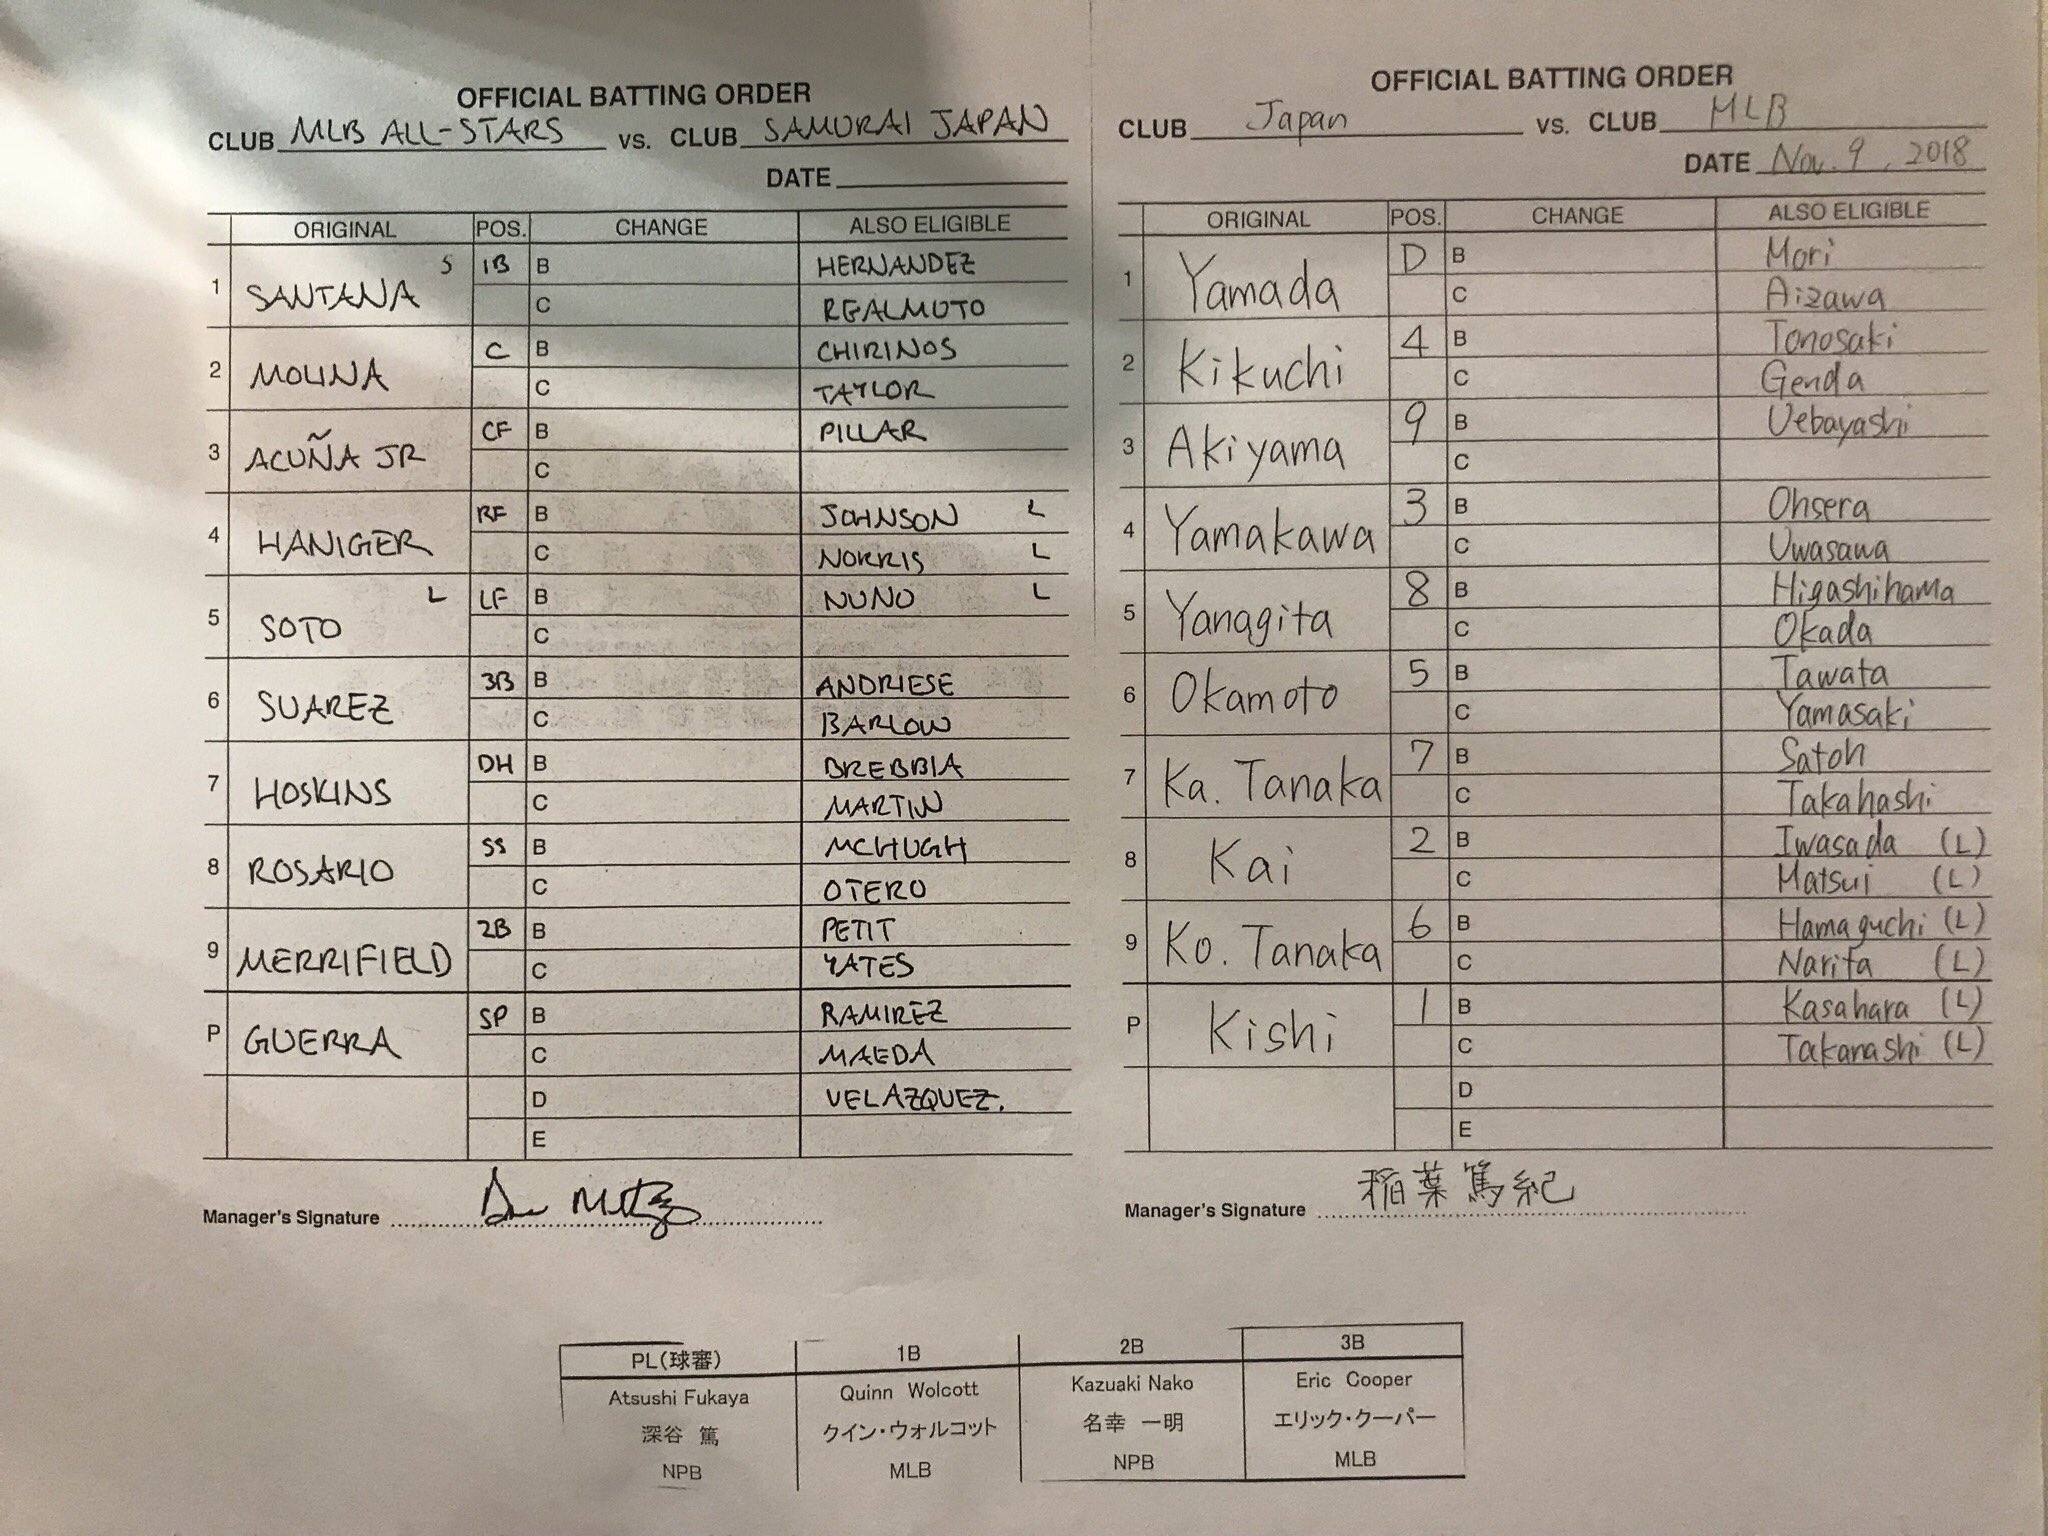 OFFICIAL BATTING ORDER
CLUB MLB ALL-STARS vs. CLUB SAMURAI JAPAN
DATE
ORIGINAL POS. CHANGE ALSO ELIGIBLE
1 SANTANA S 1B B HERNANDEZ
C REALMUTO
2 MOLINA C B CHIRINOS
C TAYLOR
3 ACUÑA JR CF B PILLAR
C
4 HANIGER RF B JOHNSON L
C NORRIS L
5 SOTO L LF B NUNO L
C
6 SUAREZ 3B B ANDRIESE
C BARLOW
7 HOSKINS DH B BREBBIA
C MARTIN
8 ROSARIO SS B MCHUGH
C OTERO
9 MERRIFIELD 2B B PETIT
C YATES
P GUERRA SP B RAMIREZ
C MAEDA
D VELAZQUEZ.
E
Manager's Signature
OFFICIAL BATTING ORDER
CLUB Japan vs. CLUB MLB
DATE Nov. 9, 2018
ORIGINAL POS. CHANGE ALSO ELIGIBLE
1 Yamada D B Mori
C Aizawa
2 Kikuchi 4 B Tonosaki
C Genda
3 Akiyama 9 B Uebayashi
C
4 Yamakawa 3 B Ohsera
C Uwasawa
5 Yanagita 8 B Higashihama
C Okada
6 Okamoto 5 B Tawata
C Yamasaki
7 Ka. Tanaka 7 B Satoh
C Takahashi
8 Kai 2 B Iwasada (L)
C Matsui (L)
9 Ko. Tanaka 6 B Hamaguchi (L)
C Narita (L)
P Kishi 1 B Kasahara (L)
C Takanashi (L)
D
E
Manager's Signature 稲葉篤紀
PL(球審) 1B 2B 3B
Atsushi Fukaya Quinn Wolcott Kazuaki Nako Eric Cooper
深谷 篤 クイン・ウォルコット 名幸 一明 エリック・クーパー
NPB MLB NPB MLB